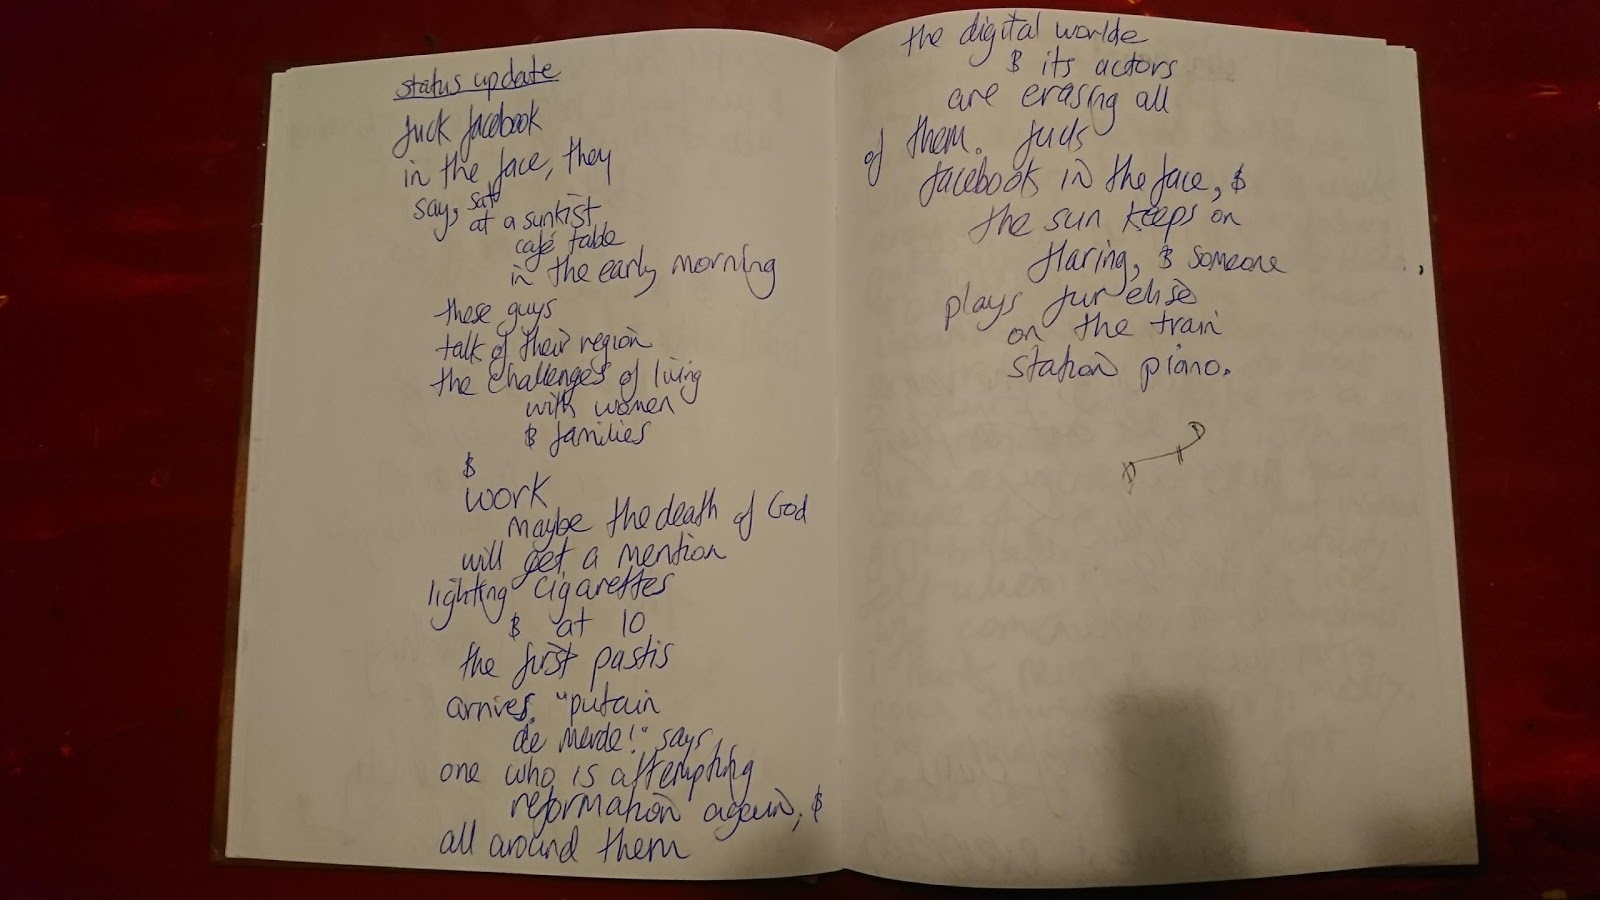 status update
fuck facebook
in the face, they
say, sat
at a sunkist
café table
in the early morning
these guys
talk of their region
the challenges of living
with women
& families
&
work
maybe the death of God
will get a mention
lighting cigarettes
& at 10
the first pastis
arrives. "putain
de merde!" says
one who is attempting
reformation again, &
all around them
the digital worlde
& its actors
are erasing all
of them. fuck
facebook in the face, &
the sun keeps on
flaring, & someone
plays fur elise
on the train
station piano.